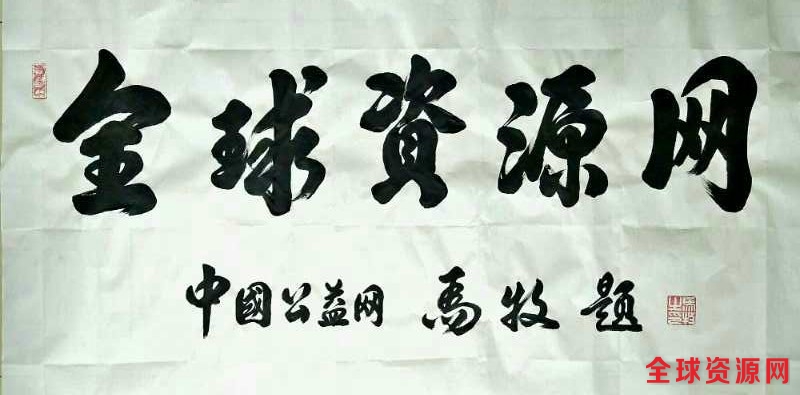 全球資源网
中國公益网 馬牧 题
全球资源网